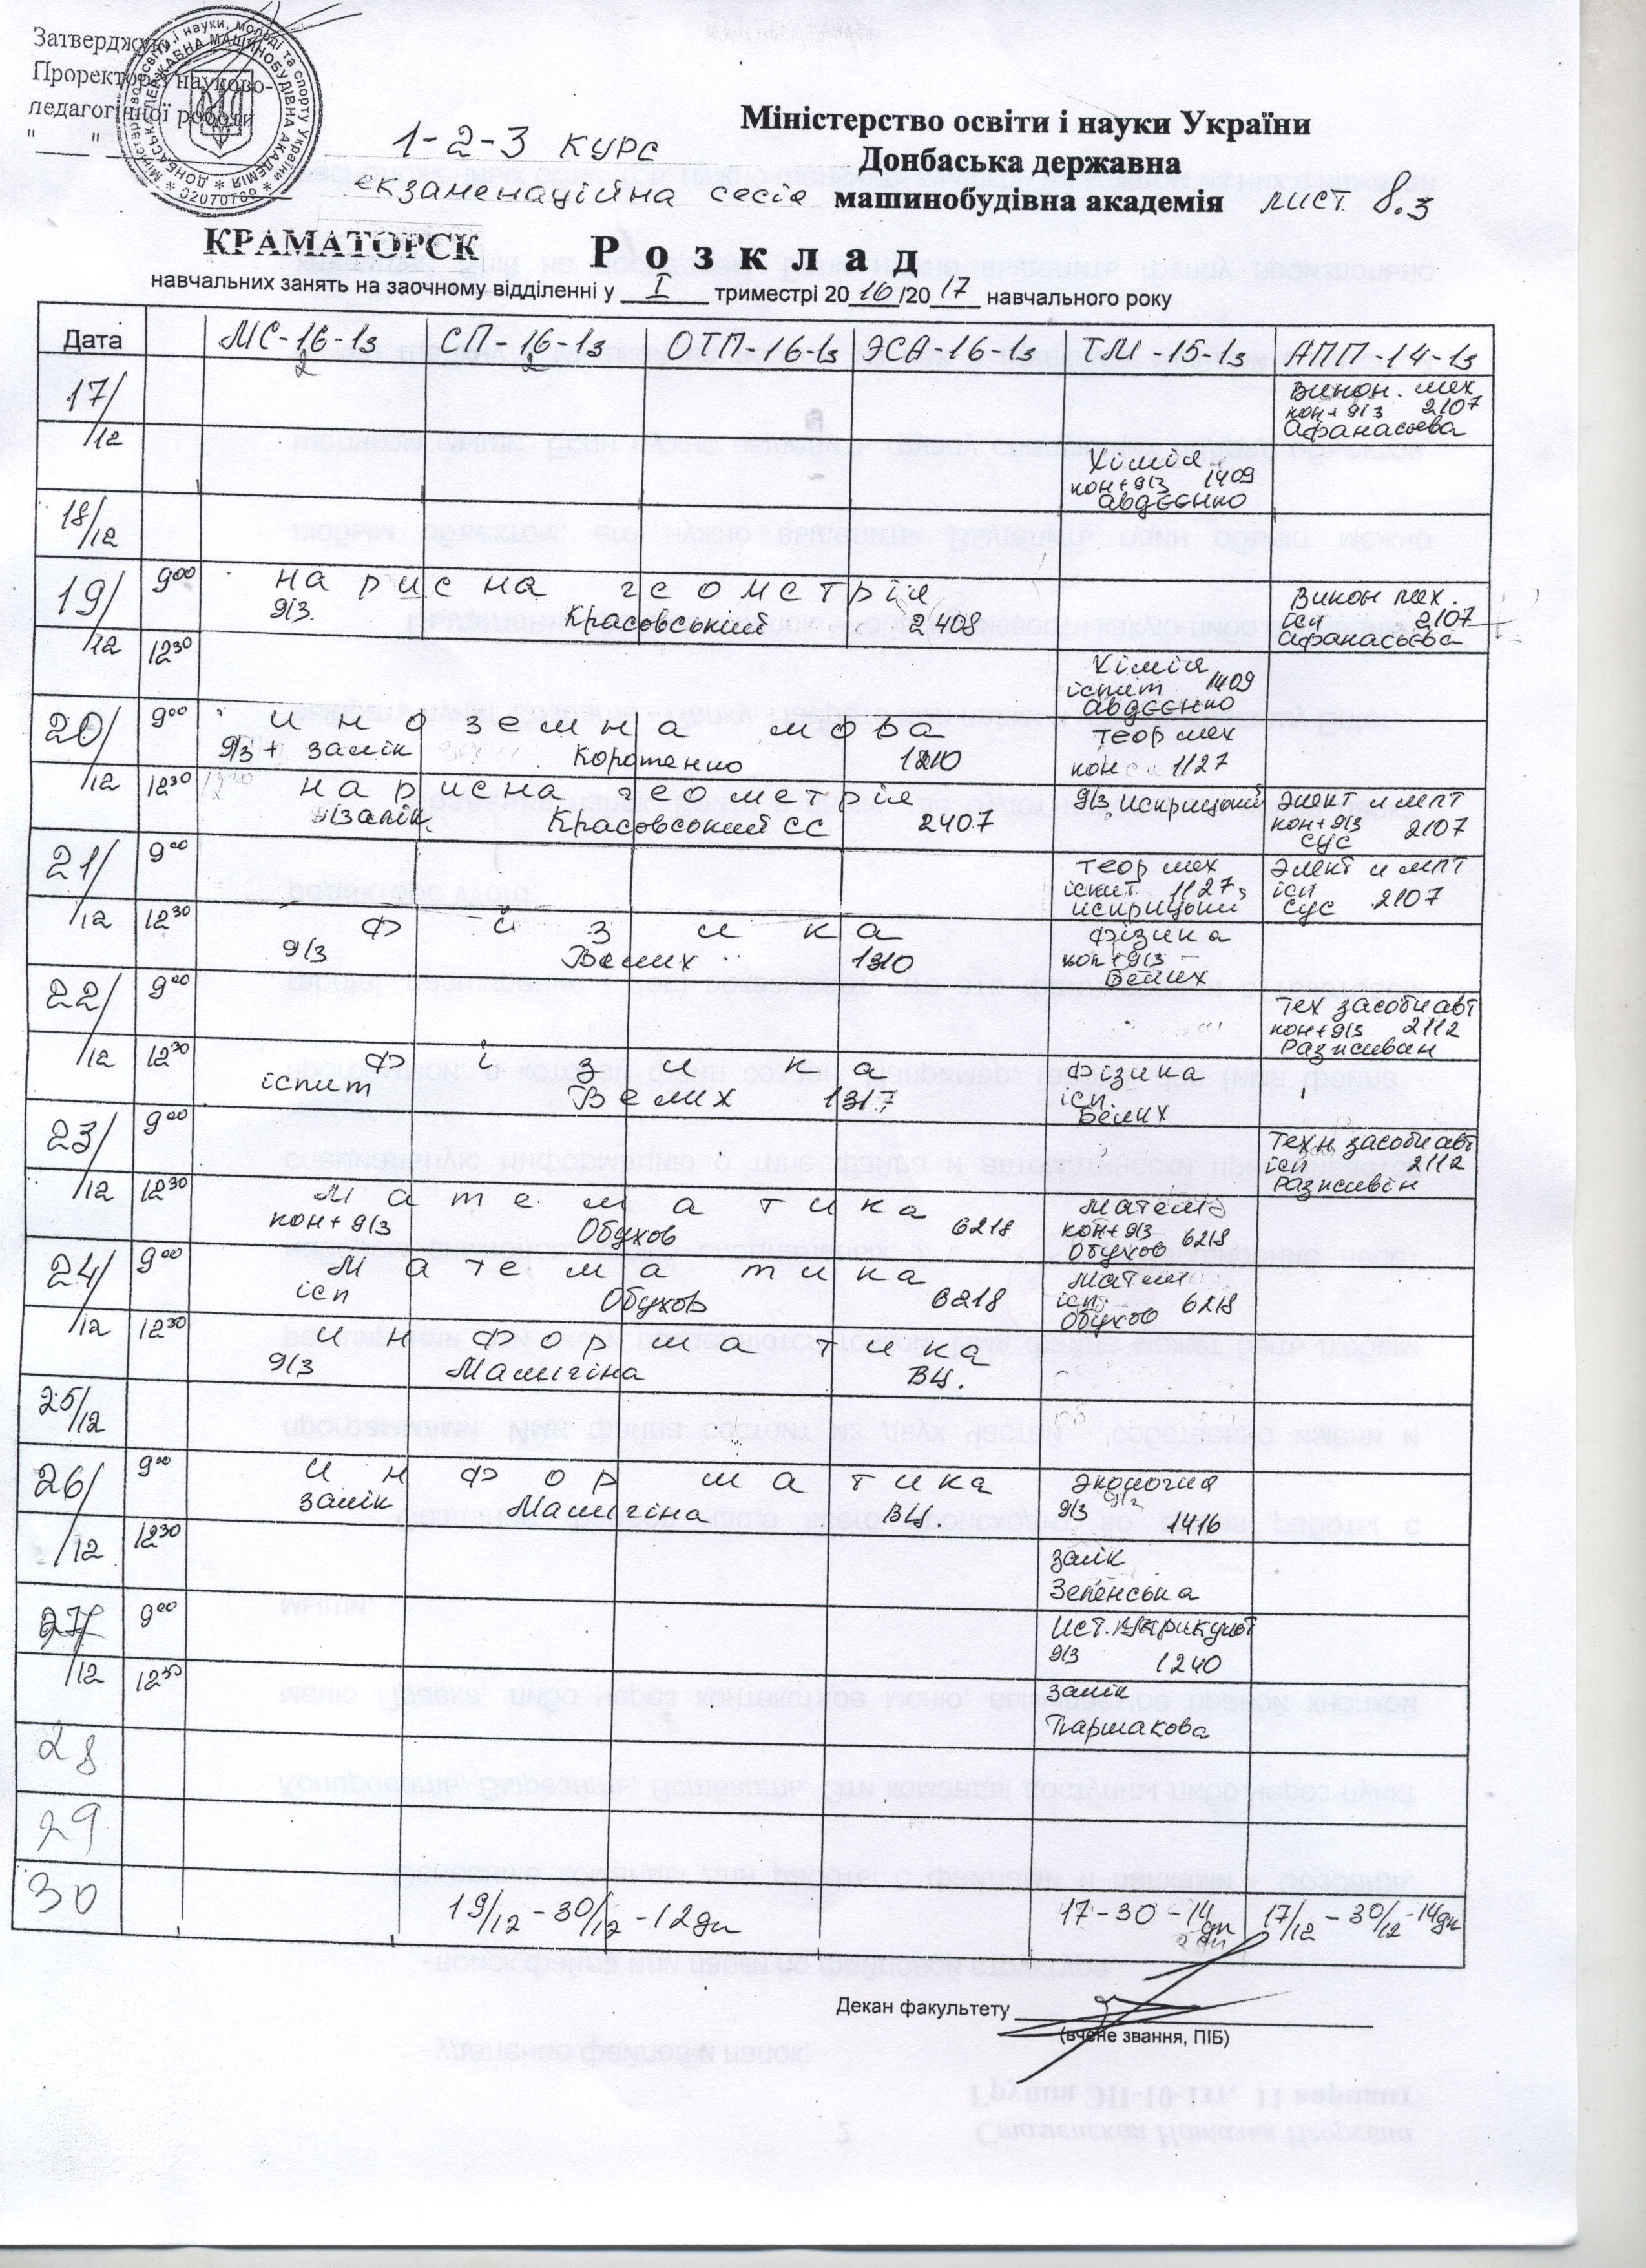 Затверджую
Проректор з науково-
педагогічної роботи
"____"
Міністерство освіти і науки України
Донбаська державна
машинобудівна академія
1-2-3 курс
екзаменаційна сесія
лист 8.3
КРАМАТОРСК
Розклад
навчальних занять на заочному відділенні у I триместрі 2016/2017 навчального року
Дата МС-16-1з СП-16-1з ОТП-16-1з ЭСА-16-1з ТМ-15-1з АПП-14-1з
2 2
17/12
Викон. мех
кон+д/з 2107
Афанасьева
Хімія
кон+д/з 1409
Авдєєнко
18/12
19/12 9⁰⁰ нарисна геометрія
д/з. Красовський 2408
Викон мех.
ісп 2107
Афанасьєва
12³⁰
Хімія
іспит 1409
Авдєєнко
20/12 9⁰⁰ иноземна мова
д/з + залік Коротенко 1210
теор мех
кон 1127
12³⁰ нарисна геометрія
залік Красовський СС 2407
д/з Искрицький
Элект и МПТ
кон+д/з 2107
Сус
21/12 9⁰⁰
теор мех
іспит 1127
Искрицький
Элект и МПТ
ісп 2107
Сус
12³⁰ Физика
д/з Велих 1310
Фізика
кон+д/з
Белих
22/12 9⁰⁰
Тех засоби авт
кон+д/з 2112
Разживин
12³⁰ Фізика
іспит Велих 1317
Фізика
ісп.
Белих
23/12 9⁰⁰
Техн засоби авт
ісп 2112
Разживін
12³⁰ Математика
кон+д/з Обухов 6218
Матем
кон+д/з
Обухов 6218
24/12 9⁰⁰ Математика
ісп Обухов 6218
Матем
ісп. 6218
Обухов
12³⁰ Информатика
д/з Малигіна ВЦ.
25/12
26/12 9⁰⁰ Информатика
залік Малигіна ВЦ.
Экология
д/з 1416
12³⁰
залік
Зеленська
27/12 9⁰⁰
д/з 1240
12³⁰
залік
Паршакова
28
29
30
19/12 - 30/12 - 12дн
17-30-14
дн
17/12 - 30/12 - 14дн
Декан факультету
(вчене звання, ПІБ)